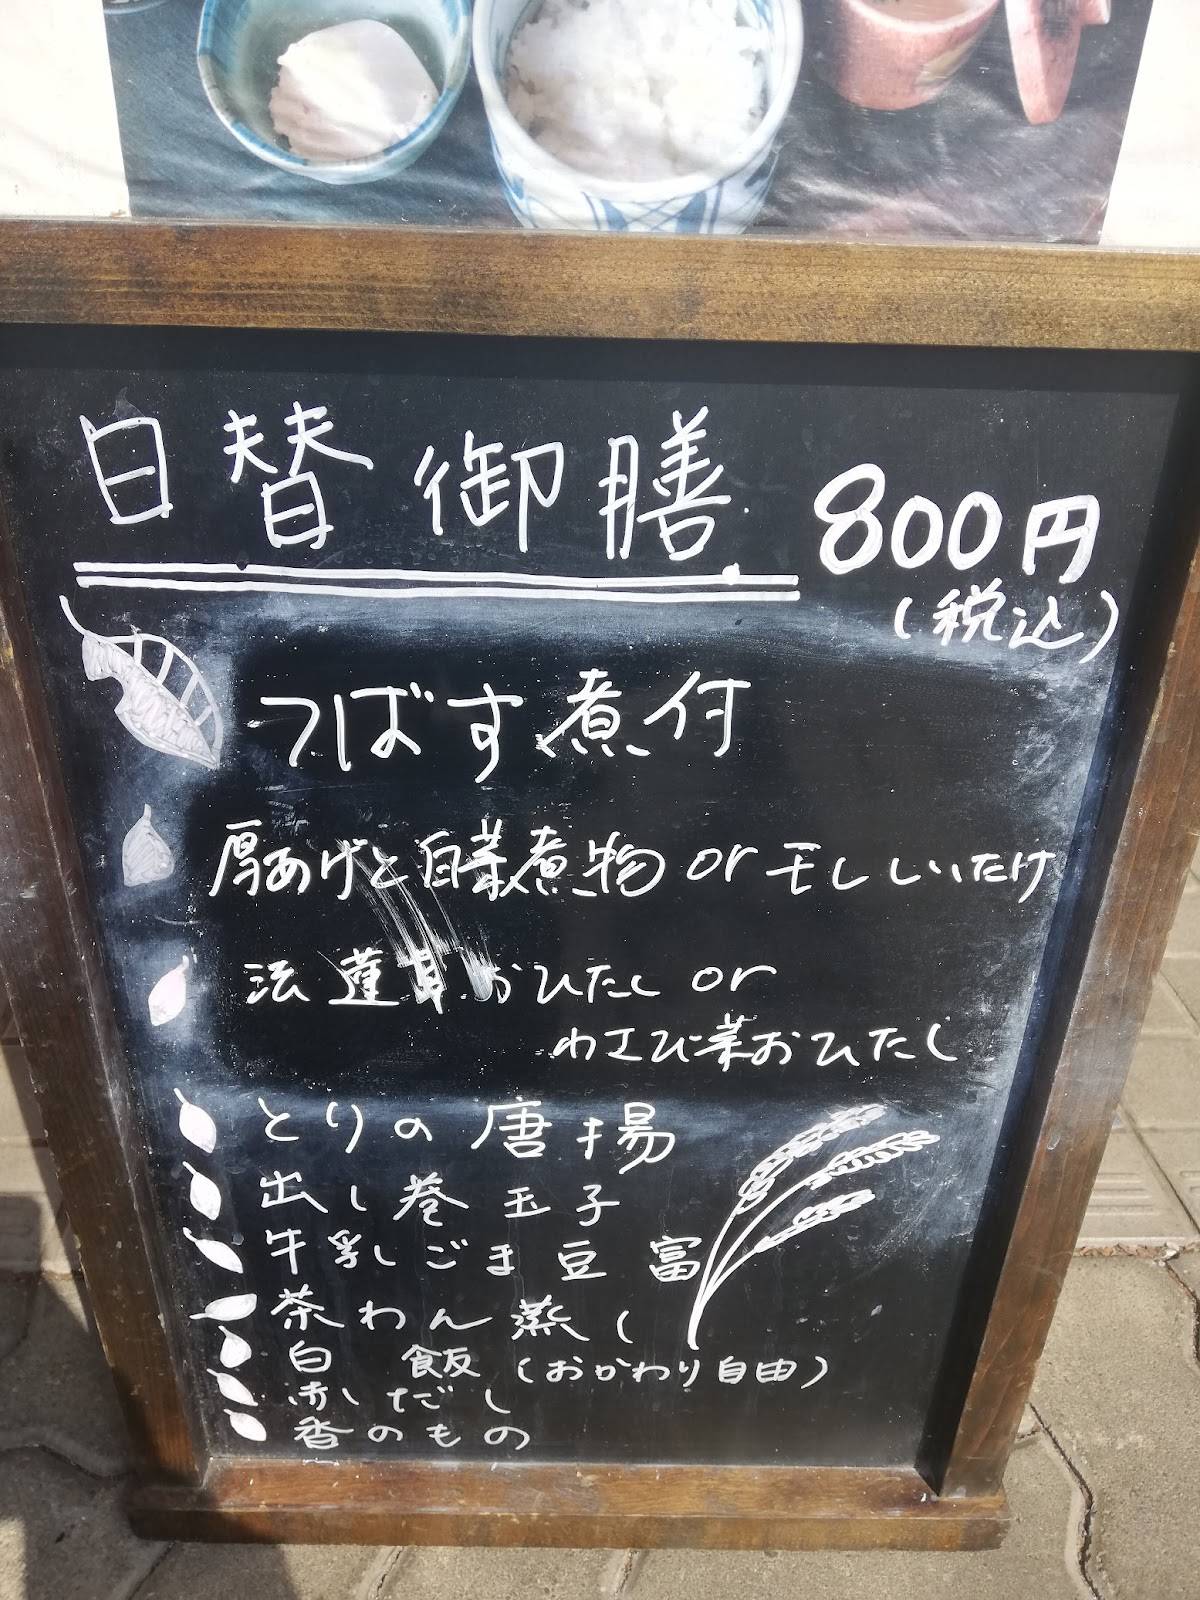 日替御膳 800円
(税込)
つばす煮付
厚あげと白菜煮物 or 干ししいたけ
法蓮草おひたし or
わさび菜おひたし
とりの唐揚
出し巻玉子
牛乳しごま豆富
茶わん蒸し
白 飯 (おかわり自由)
赤しだし
香のもの